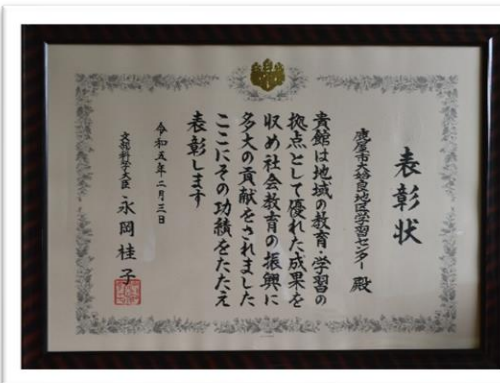 表彰状
鹿屋市大姶良地区学習センター 殿
貴館は地域の教育・学習の
拠点として優れた成果を
収め社会教育の振興に
多大の貢献をされました
ここにその功績をたたえ
表彰します
令和五年二月三日
文部科学大臣 永岡桂子